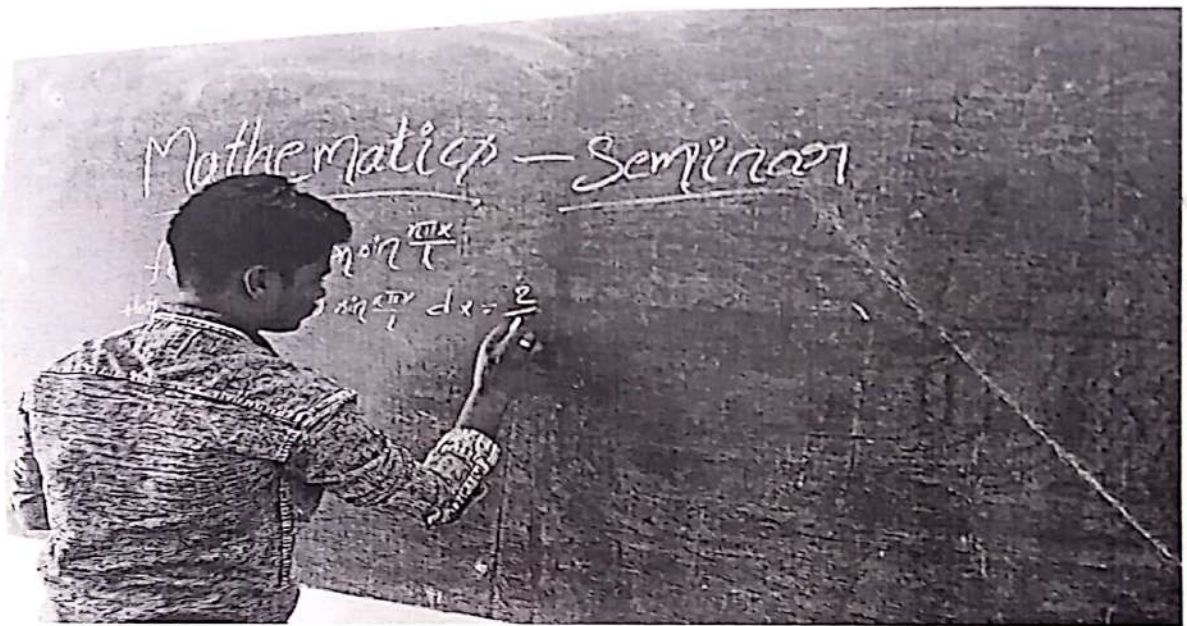 Mathematics - Seminar
sin nπx/l
sin nπx/l dx = 2/